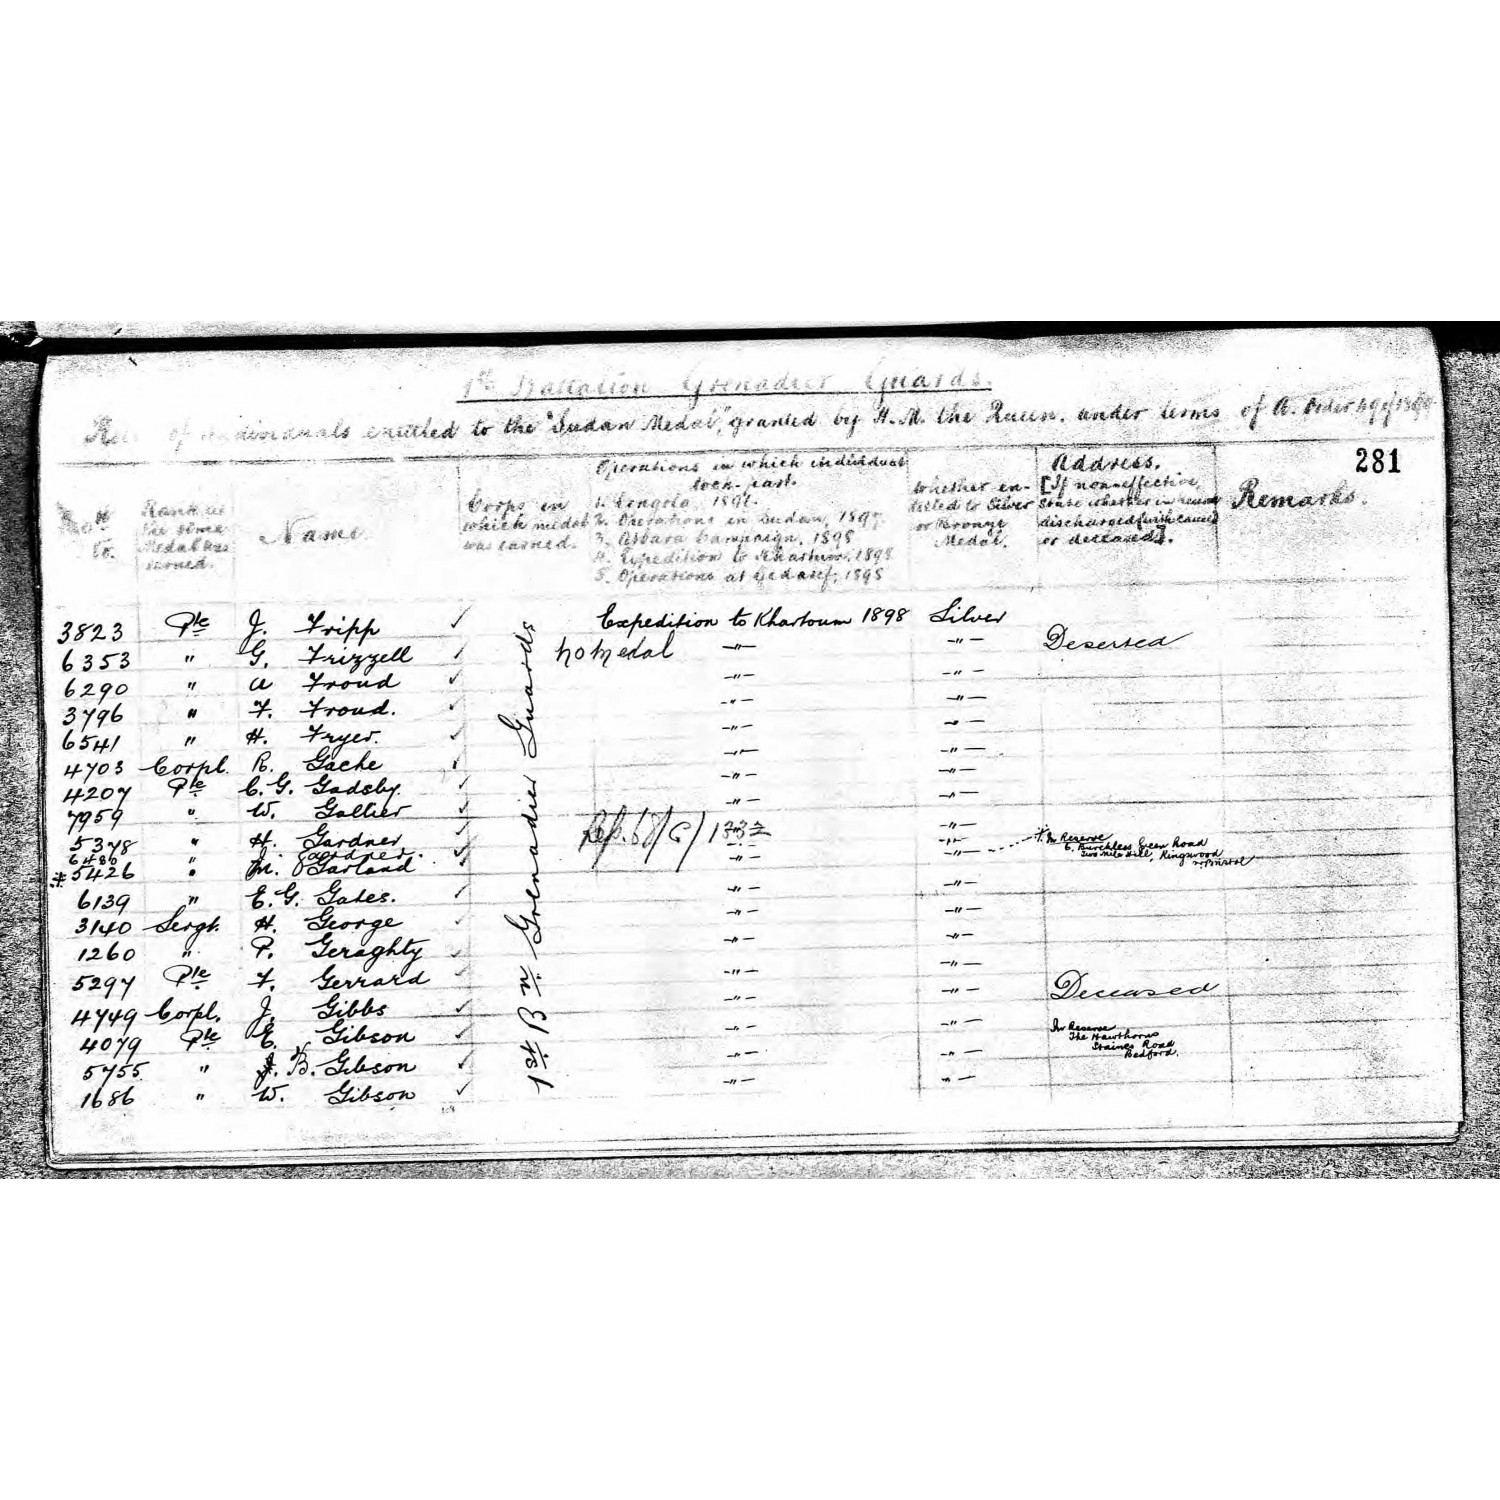 1st Battalion Grenadier Guards.
Roll of Individuals entitled to the "Sudan Medal", granted by H.M. the Queen, under terms of A. Order
281
Nos.
Rank at the time Medal was earned.
Name.
Corps in which medal was earned.
Operations in which individual took part.
1. Dongola, 1896.
2. Operations in Sudan, 1897.
3. Atbara Campaign, 1898
4. Expedition to Khartoum, 1898
5. Operations at Gedaref, 1898
Whether entitled to Silver or Bronze Medal.
Address.
[If non-effective, state whether in reserve discharged (with cause) or deceased].
Remarks.
1st Bn. Grenadier Guards
3823 Pte J. Fripp ✓ Expedition to Khartoum 1898 Silver
6353 " G. Frizzell ✓ No Medal —"— —"— Deserted
6290 " A Froud ✓ —"— —"—
3796 " F. Froud. ✓ —"— —"—
6541 " H. Fryer. ✓ —"— —"—
4703 Corpl. R. Gache ✓ —"— —"—
4207 Pte C. G. Gadsby. ✓ —"— —"—
7959 " W. Gallier ✓ —"— —"—
5378 " H. Gardner ✓ —"— —"—
6480 J. Gardner. ✓ Rep. 68/G/1332
* 5426 " M. Garland ✓ —"— —"— * In Reserve
6. Burchless Green Road
Two Mile Hill, Kingswood
nr. Bristol
6139 " E. G. Gates. ✓ —"— —"—
3140 Sergt. H. George ✓ —"— —"—
1260 " P. Geraghty ✓ —"— —"—
5297 Pte F. Gerrard ✓ —"— —"—
4749 Corpl. J. Gibbs ✓ —"— —"— Deceased
4079 Pte E. Gibson ✓ —"— —"— In Reserve
The Hawthorns
Staines Road
Bedford.
5755 " J. B. Gibson ✓ —"— —"—
1686 " W. Gibson ✓ —"— —"—